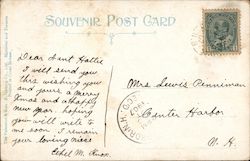 SOUVENIR POST CARD
Dear Aunt Hattie
I will send you
this wishing you
and yours a Merry
Xmas and a happy
new year hoping
you will write to
me soon I remain
your loving niece
Ethel M. Knox
Mrs Lewis Penniman
Center Harbor
N. H.